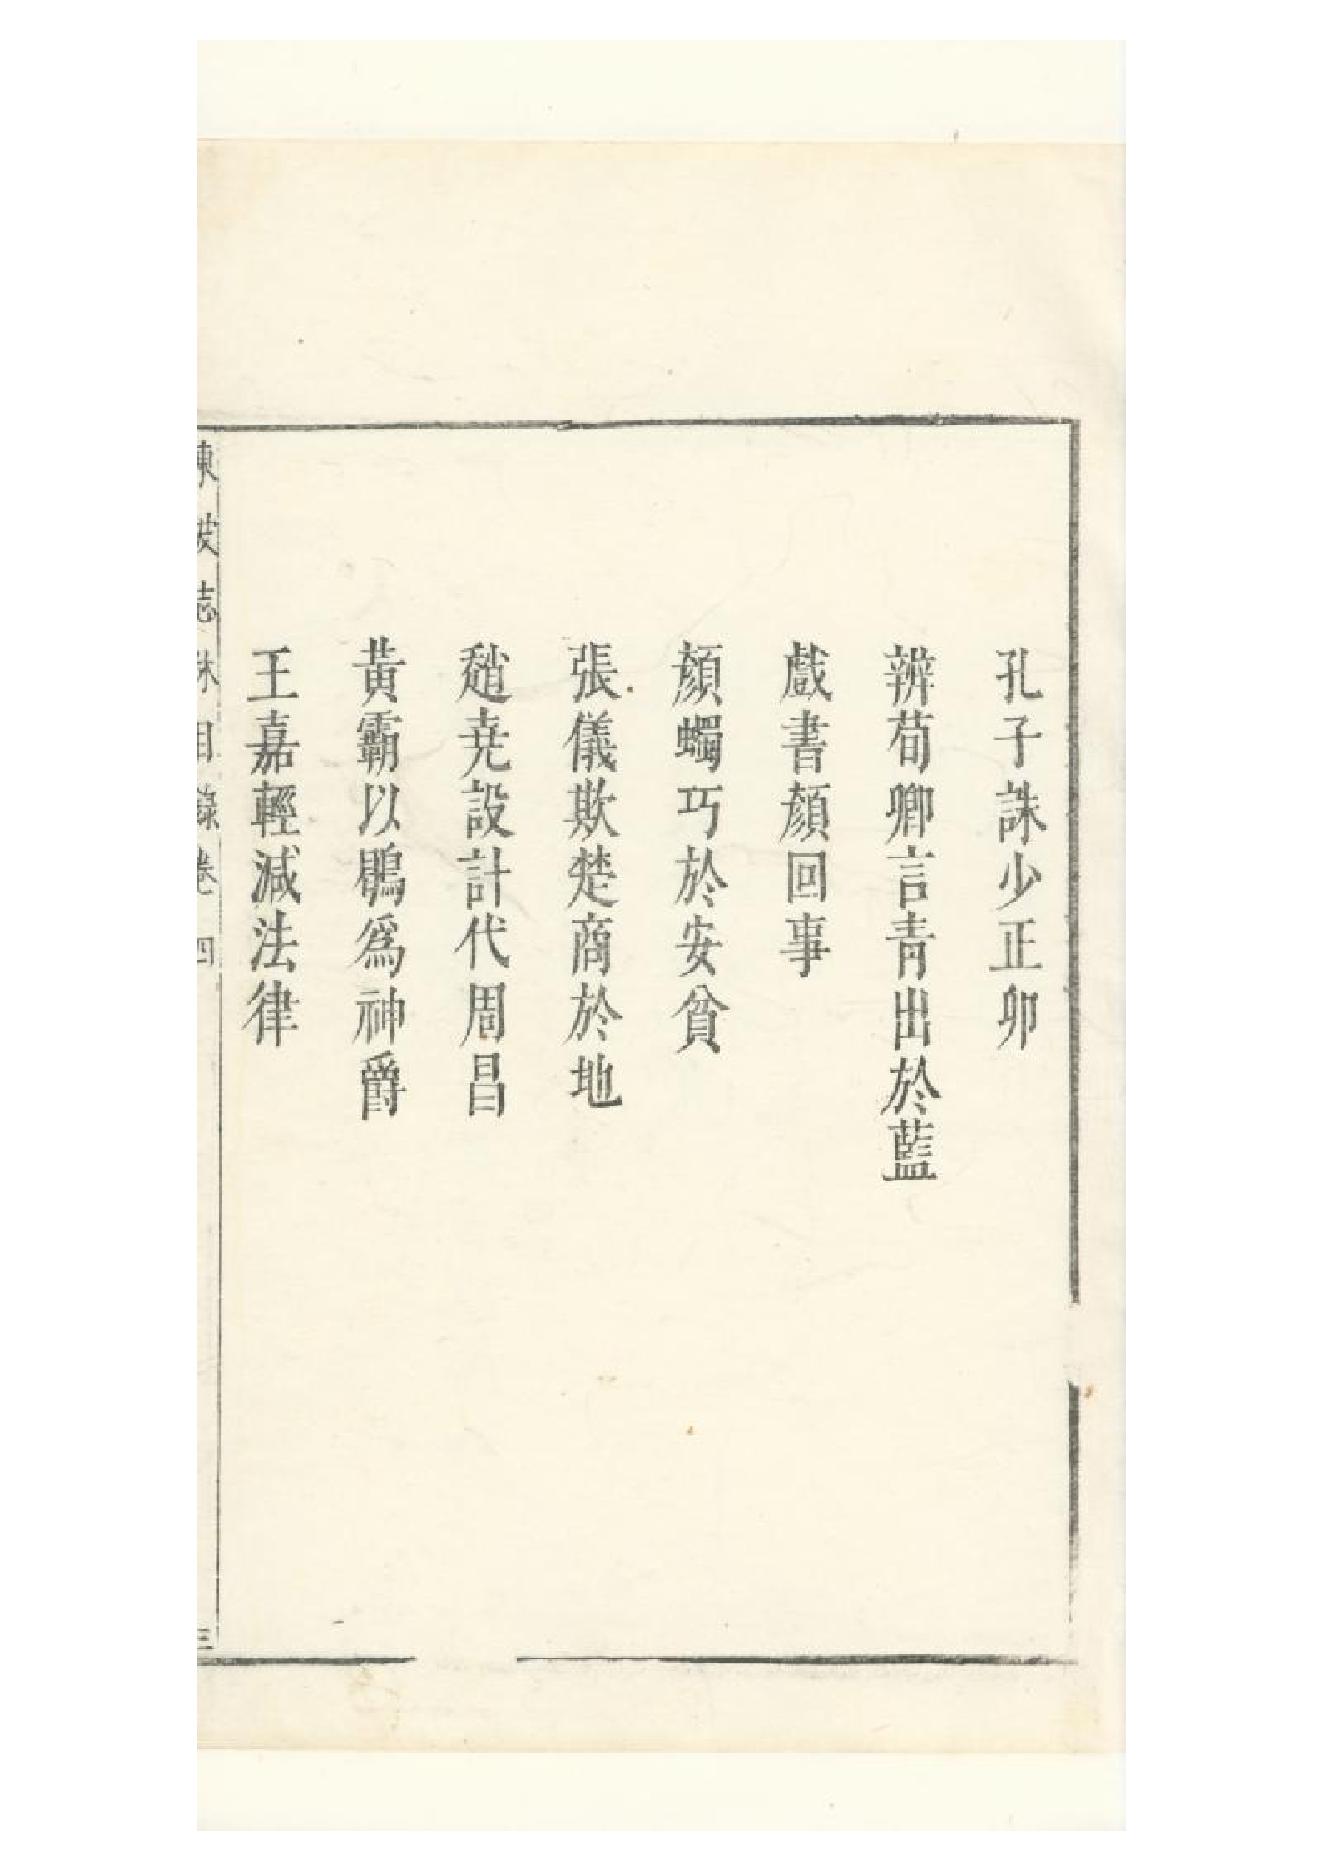 孔子誅少正卯
辨荀卿言青出於藍
戲書顏回事
顏蠋巧於安貧
張儀欺楚商於地
趙堯設計代周昌
黃霸以鶡爲神爵
王嘉輕減法律
東坡志林目錄卷四
三